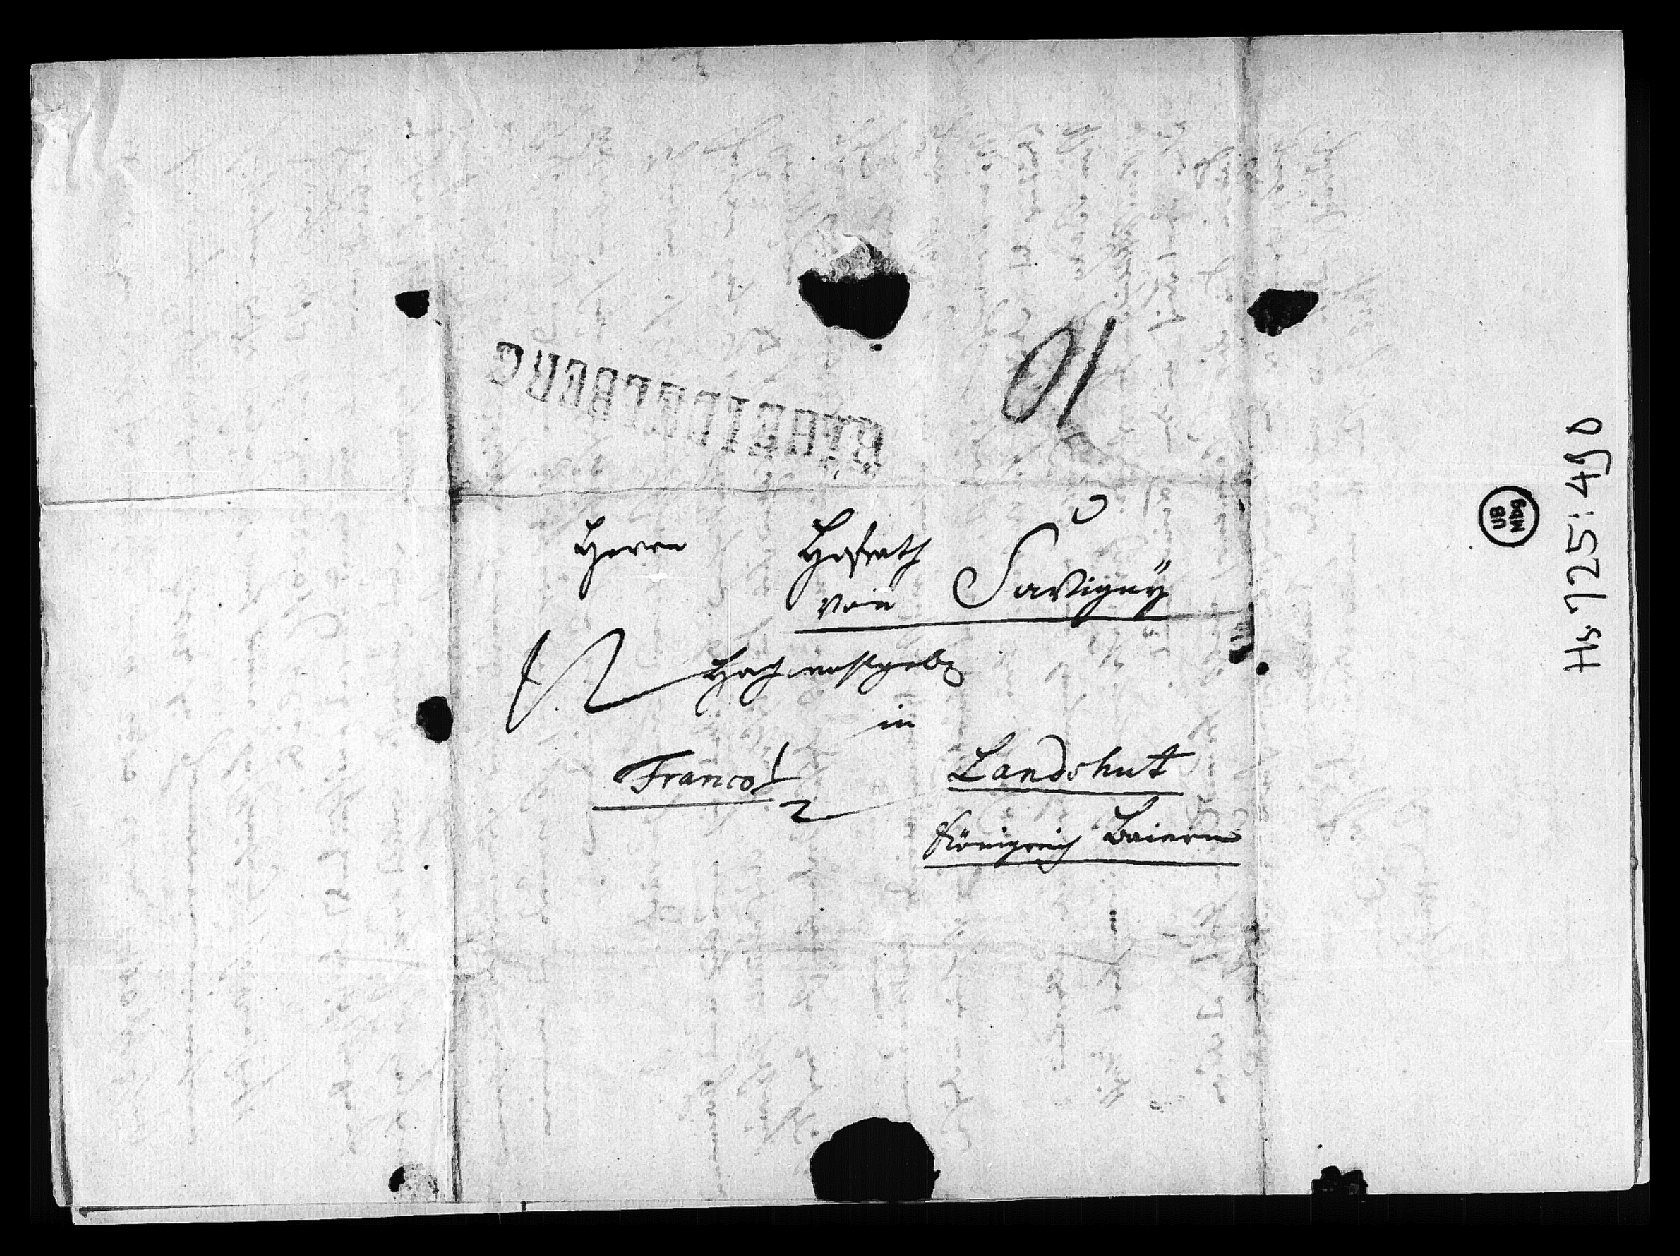 R.HEIDELBERG
10
Herrn Hofrath
von Savigny
Hochwohlgeb
in
Franco! Landshut
Königreich Baiern
Hs 725:490
UB
Mbg